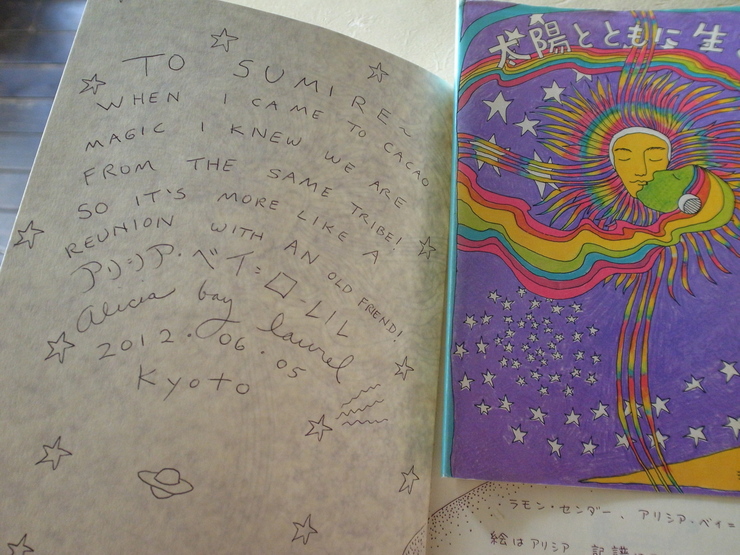 TO SUMIRE~
WHEN I CAME TO CACAO
MAGIC I KNEW WE ARE
FROM THE SAME TRIBE!
SO IT'S MORE LIKE A
REUNION WITH AN OLD FRIEND!
アリシア・ベイ=ローレル
alicia bay laurel
2012.06.05
Kyoto
太陽とともに生
ラモン・センダー、アリシア・ベイ=
絵はアリシア